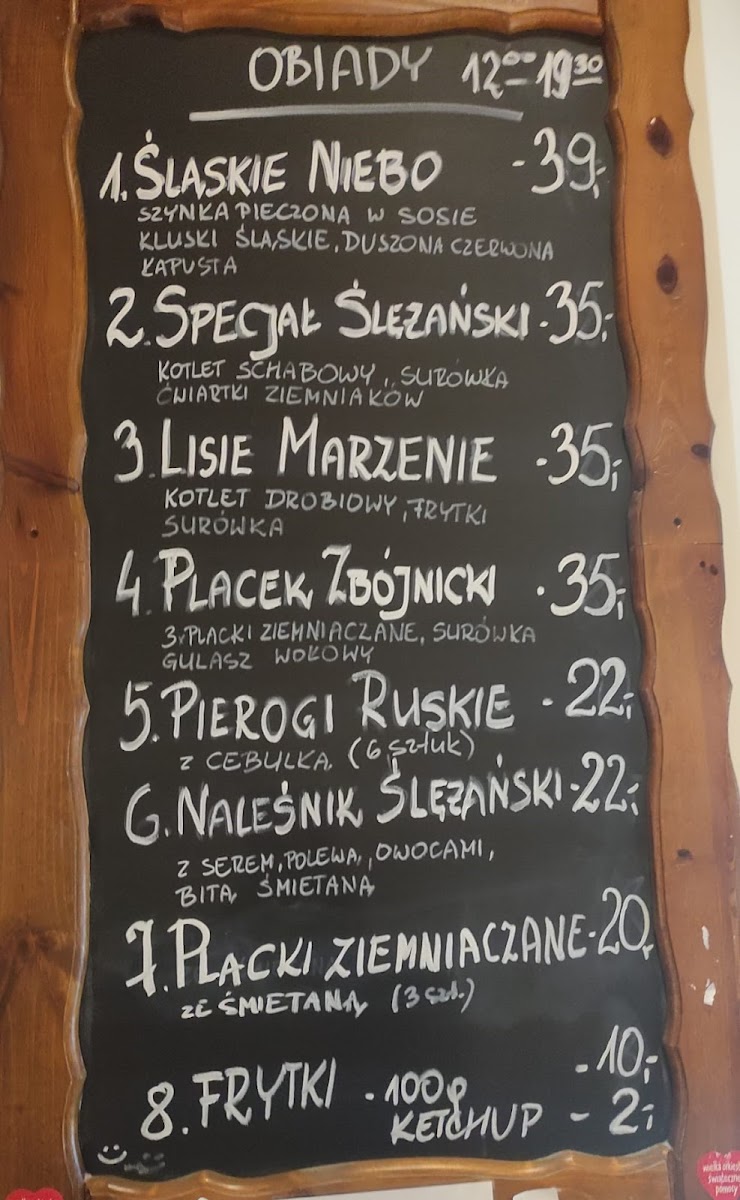 OBIADY 12⁰⁰-19³⁰
1. ŚLĄSKIE NIEBO -39,-
SZYNKA PIECZONA W SOSIE
KLUSKI ŚLĄSKIE, DUSZONA CZERWONA
KAPUSTA
2. SPECJAŁ ŚLĘŻAŃSKI -35,-
KOTLET SCHABOWY, SURÓWKA
ĆWIARTKI ZIEMNIAKÓW
3. LISIE MARZENIE -35,-
KOTLET DROBIOWY, FRYTKI
SURÓWKA
4. PLACEK ZBÓJNICKI -35,-
3x PLACKI ZIEMNIACZANE, SURÓWKA
GULASZ WOŁOWY
5. PIEROGI RUSKIE - 22,-
Z CEBULKĄ (6 sztuk)
6. NALEŚNIK ŚLĘŻAŃSKI -22,-
Z SEREM, POLEWĄ, OWOCAMI,
BITĄ ŚMIETANĄ
7. PLACKI ZIEMNIACZANE -20,-
ZE ŚMIETANĄ (3 szt.)
8. FRYTKI - 100g -10,-
KETCHUP - 2,-
wielka orkiestra
świątecznej
pomocy